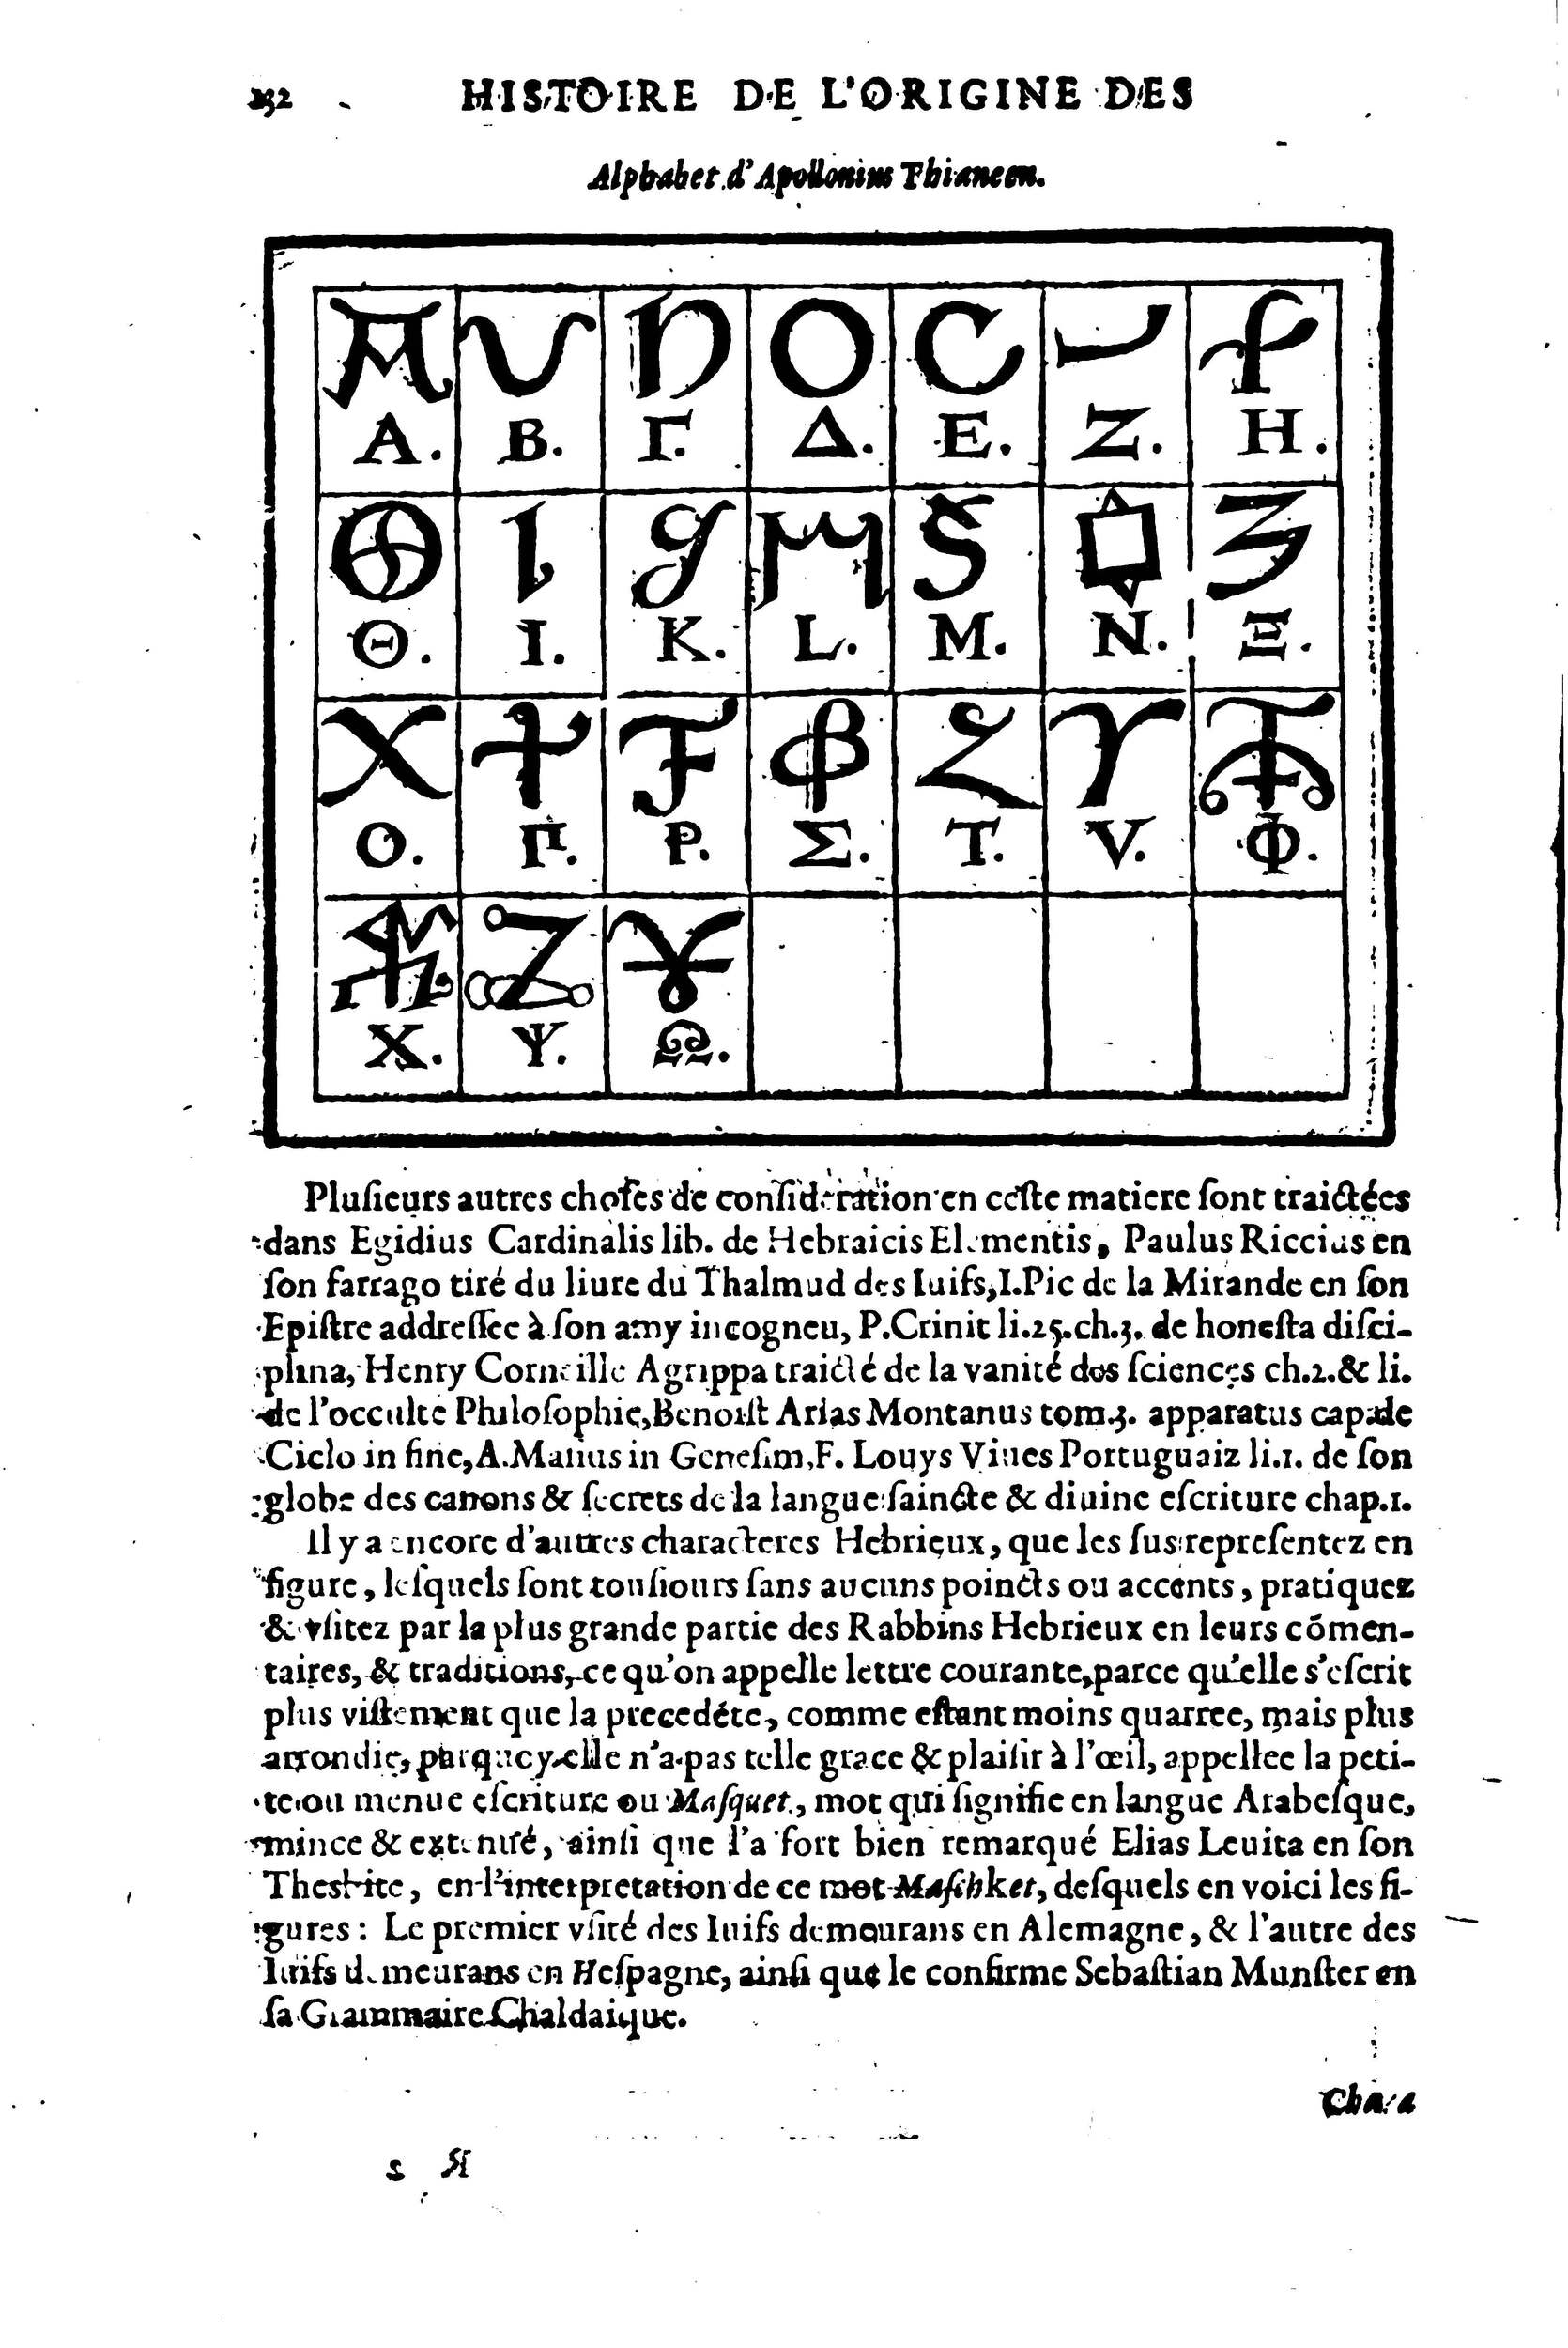 132 HISTOIRE DE L'ORIGINE DES
Alphabet d'Apollonius Thianeen.
A. B. Γ. Δ. E. Z. H.
Θ. I. K. L. M. N. Ξ.
O. Π. P. Σ. T. V. Φ.
X. Ψ. Ω.
Pluſieurs autres choſes de conſideration en ceſte matiere ſont traictées
dans Egidius Cardinalis lib. de Hebraicis Elementis, Paulus Riccius en
ſon farrago tiré du liure du Thalmud des Iuifs, I.Pic de la Mirande en ſon
Epiſtre addreſſee à ſon amy incogneu, P.Crinit li.25.ch.3. de honeſta diſci-
plina, Henry Corneille Agrippa traicté de la vanité des ſciences ch.2.& li.
de l'occulte Philoſophie, Benoiſt Arias Montanus tom.3. apparatus cap.de
Ciclo in fine, A.Maſius in Geneſim, F. Louys Viues Portuguaiz li.1. de ſon
globe des canons & ſecrets de la langue ſaincte & diuine eſcriture chap.1.
Il y a encore d'autres characteres Hebrieux, que les ſus repreſentez en
figure, leſquels ſont touſiours ſans aucuns poincts ou accents, pratiquez
& vſitez par la plus grande partie des Rabbins Hebrieux en leurs cōmen-
taires, & traditions, ce qu'on appelle lettre courante, parce qu'elle s'eſcrit
plus viſtement que la precedéte, comme eſtant moins quarree, mais plus
arrondie, parquoy elle n'a pas telle grace & plaiſir à l'œil, appellee la peti-
te ou menue eſcriture ou Maſquet, mot qui ſignifie en langue Arabeſque,
mince & extenué, ainſi que l'a fort bien remarqué Elias Leuita en ſon
Thesbite, en l'interpretation de ce mot Maſchket, deſquels en voici les fi-
gures : Le premier vſité des Iuifs demourans en Alemagne, & l'autre des
Iuifs demeurans en Heſpagne, ainſi que le confirme Sebaſtian Munſter en
ſa Grammaire Chaldaique.
Chara
R 2